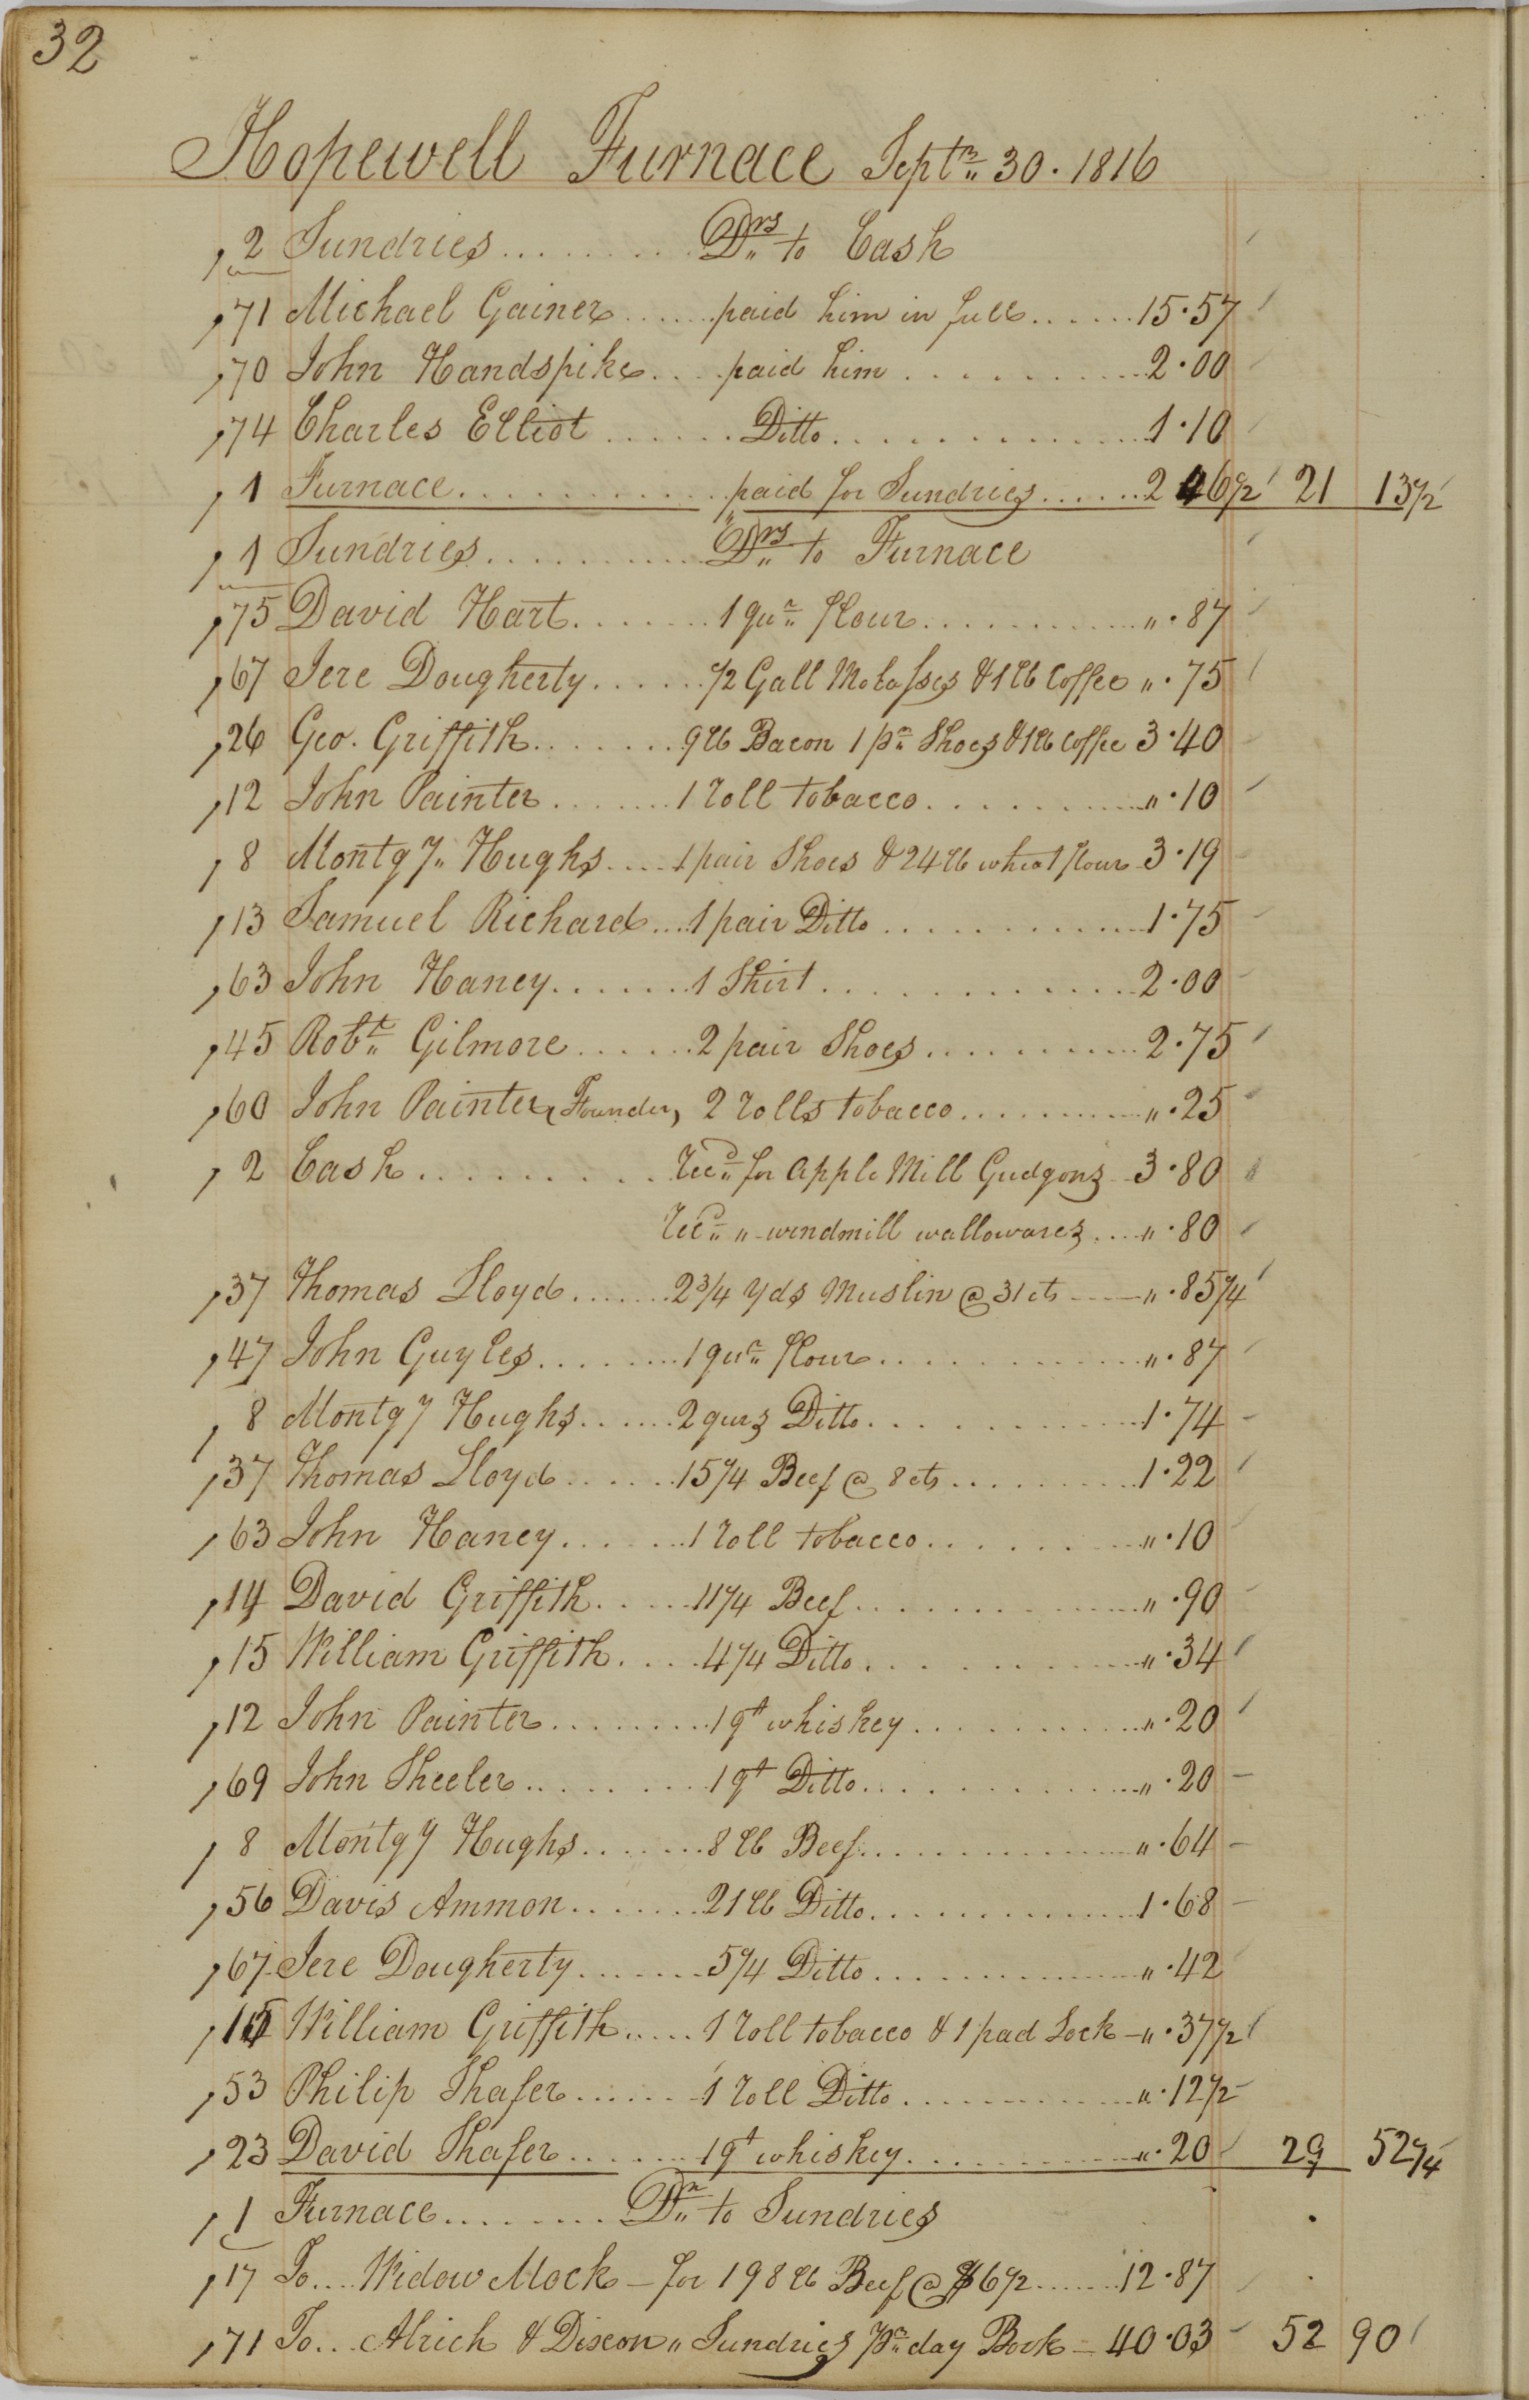 32
Hopewell Furnace Septr. 30. 1816
2 Sundries......... Drs to Cash
71 Michael Gainer...... paid him in full...... 15.57
70 John Handspike.... paid him.......... 2.00
74 Charles Elliot...... Ditto............ 1.10
1 Furnace............ paid for Sundries...... 2 46½ 21 13½
1 Sundries........... Drs to Furnace
75 David Hart....... 1 qur flour.......... ".87
67 Jere Dougherty...... ½ Gall Molasses & 1 lb Coffee ".75
26 Geo. Griffith....... 9 lb Bacon 1 pr Shoes & 1 lb Coffee 3.40
12 John Painter....... 1 roll tobacco......... ".10
8 Montgy Hughs.... 1 pair Shoes & 24 lb wheat flour 3.19
13 Samuel Richard... 1 pair Ditto............ 1.75
63 John Haney....... 1 Shirt............. 2.00
45 Robt Gilmore...... 2 pair Shoes.......... 2.75
60 John Painter (Founder) 2 rolls tobacco......... ".25
2 Cash.......... Recd for apple Mill Gudgons 3.80
Recd " windmill wallowares.... ".80
37 Thomas Lloyd....... 2¾ yds Muslin @ 31 cts ---- ".85¼
47 John Guyles........ 1 qur flour............ ".87
8 Montgy Hughs...... 2 qurs Ditto............ 1.74
37 Thomas Lloyd...... 15¼ Beef @ 8 cts......... 1.22
63 John Haney...... 1 roll tobacco......... ".10
14 David Griffith..... 11¼ Beef............ ".90
15 William Griffith.... 4¼ Ditto........... ".34
12 John Painter........ 1 qt whiskey.......... ".20
69 John Sheeler......... 1 qt Ditto............ ".20
8 Montgy Hughs....... 8 lb Beef............ ".64
56 Davis Ammon....... 21 lb Ditto............ 1.68
67 Jere Dougherty....... 5¼ Ditto........... ".42
15 William Griffith..... 1 roll tobacco & 1 pad Lock - ".37½
53 Philip Shafer...... 1 roll Ditto........... ".12½
23 David Shafer...... 1 qt whiskey.......... ".20 29 52¼
1 Furnace........ Dr to Sundries
17 To.... Widow Mock - for 198 lb Beef @ $6½...... 12.87
71 To... Alrich & Dixon " Sundries pr day Book - 40.03 52 90